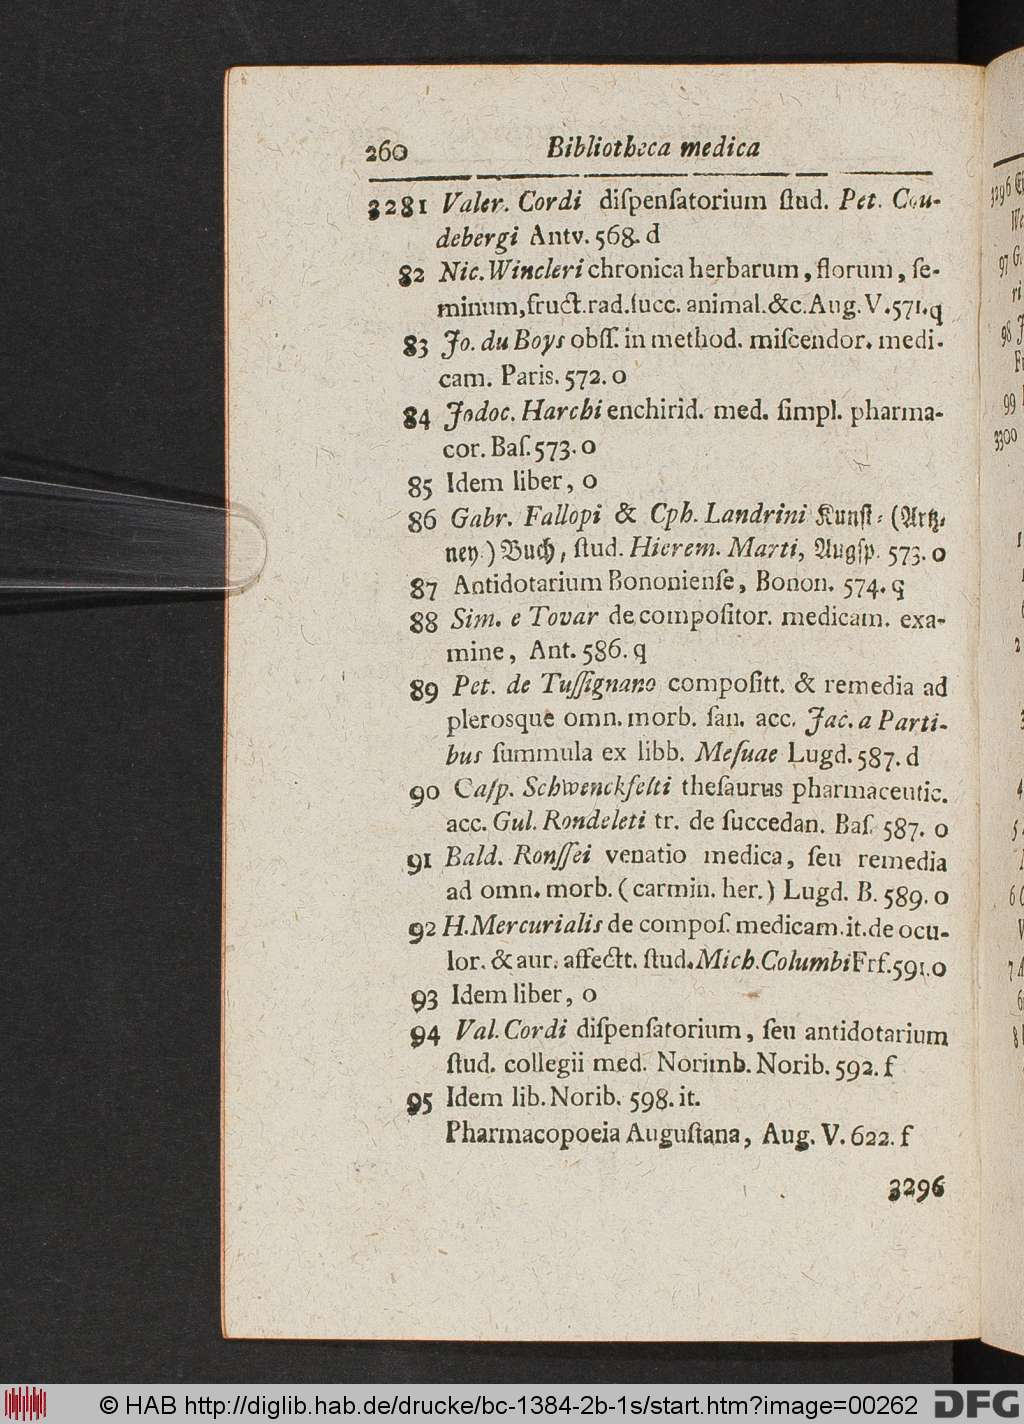 260 Bibliotheca medica
3281 Valer. Cordi diſpenſatorium ſtud. Pet. Cou-
debergi Antv. 568. d
82 Nic. Wincleri chronica herbarum, florum, ſe-
minum, fruct. rad. ſucc. animal. &c. Aug. V. 571. q
83 Jo. du Boys obſſ. in method. miſcendor. medi-
cam. Paris. 572. o
84 Jodoc. Harchi enchirid. med. ſimpl. pharma-
cor. Baſ. 573. o
85 Idem liber, o
86 Gabr. Fallopi & Cph. Landrini Kunſt-(Artz-
ney-) Buch, ſtud. Hierem. Marti, Augſp. 573. o
87 Antidotarium Bononienſe, Bonon. 574. q
88 Sim. e Tovar de compoſitor. medicam. exa-
mine, Ant. 586. q
89 Pet. de Tuſſignano compoſitt. & remedia ad
plerosque omn. morb. ſan. acc. Jac. a Parti-
bus ſummula ex libb. Meſuae Lugd. 587. d
90 Caſp. Schwenckfelti theſaurus pharmaceutic.
acc. Gul. Rondeleti tr. de ſuccedan. Baſ. 587. o
91 Bald. Ronſſei venatio medica, ſeu remedia
ad omn. morb. (carmin. her.) Lugd. B. 589. o
92 H. Mercurialis de compoſ. medicam. it. de ocu-
lor. & aur. affectt. ſtud. Mich. Columbi Frf. 591. o
93 Idem liber, o
94 Val. Cordi diſpenſatorium, ſeu antidotarium
ſtud. collegii med. Norimb. Norib. 592. f
95 Idem lib. Norib. 598. it.
Pharmacopoeia Auguſtana, Aug. V. 622. f
3296
© HAB http://diglib.hab.de/drucke/bc-1384-2b-1s/start.htm?image=00262
DFG